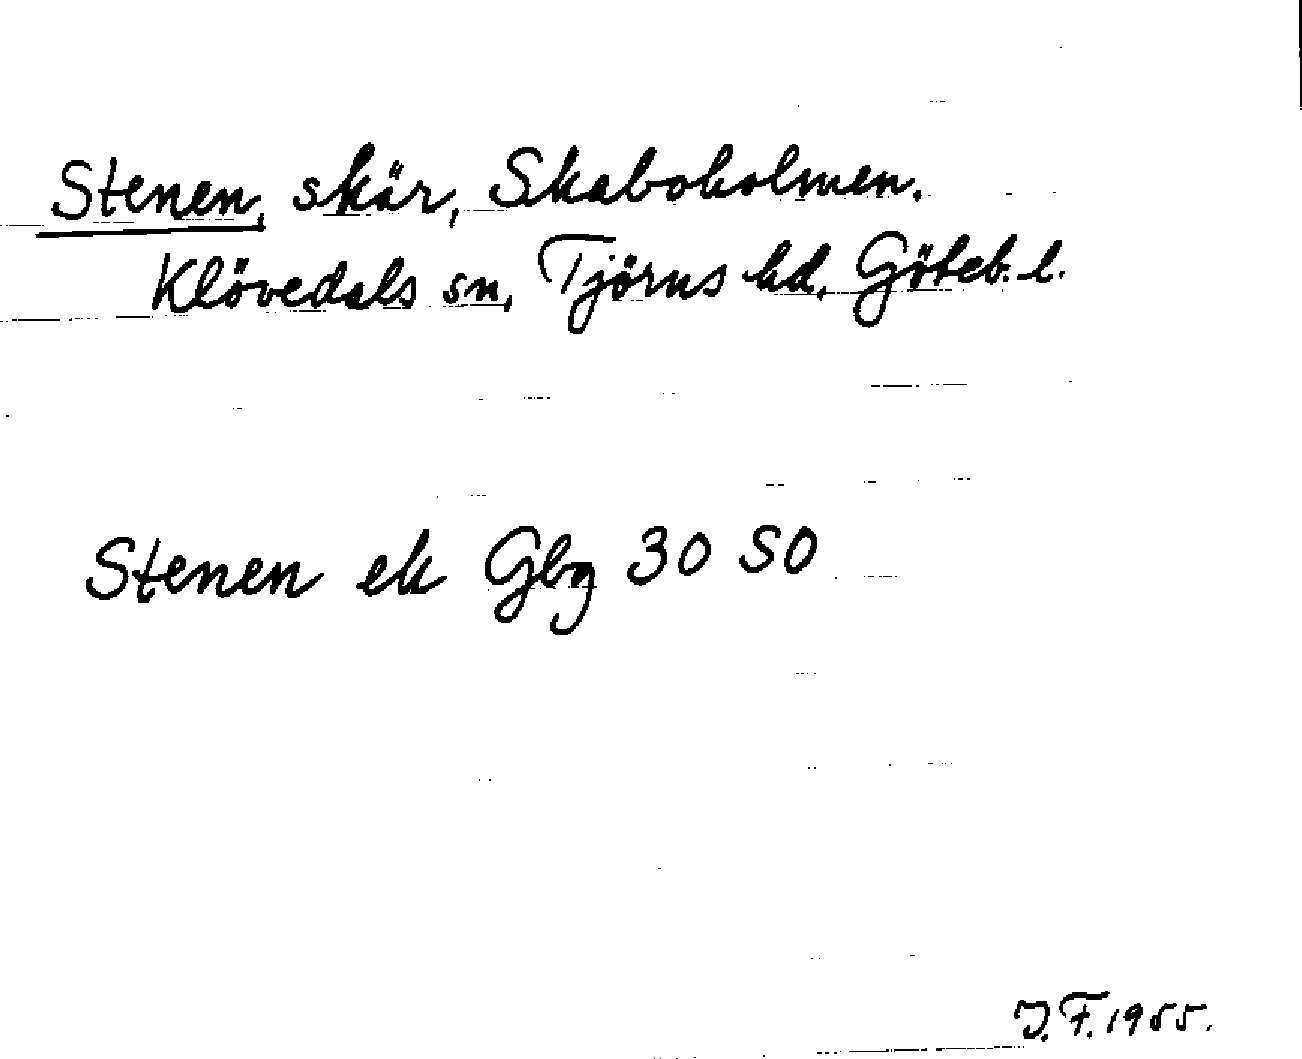 Stenen, skär, Skaboholmen.
Klövedals sn, Tjörns hd, Göteb. l.
Stenen ek Gbg 30 SO
J.F. 1955.